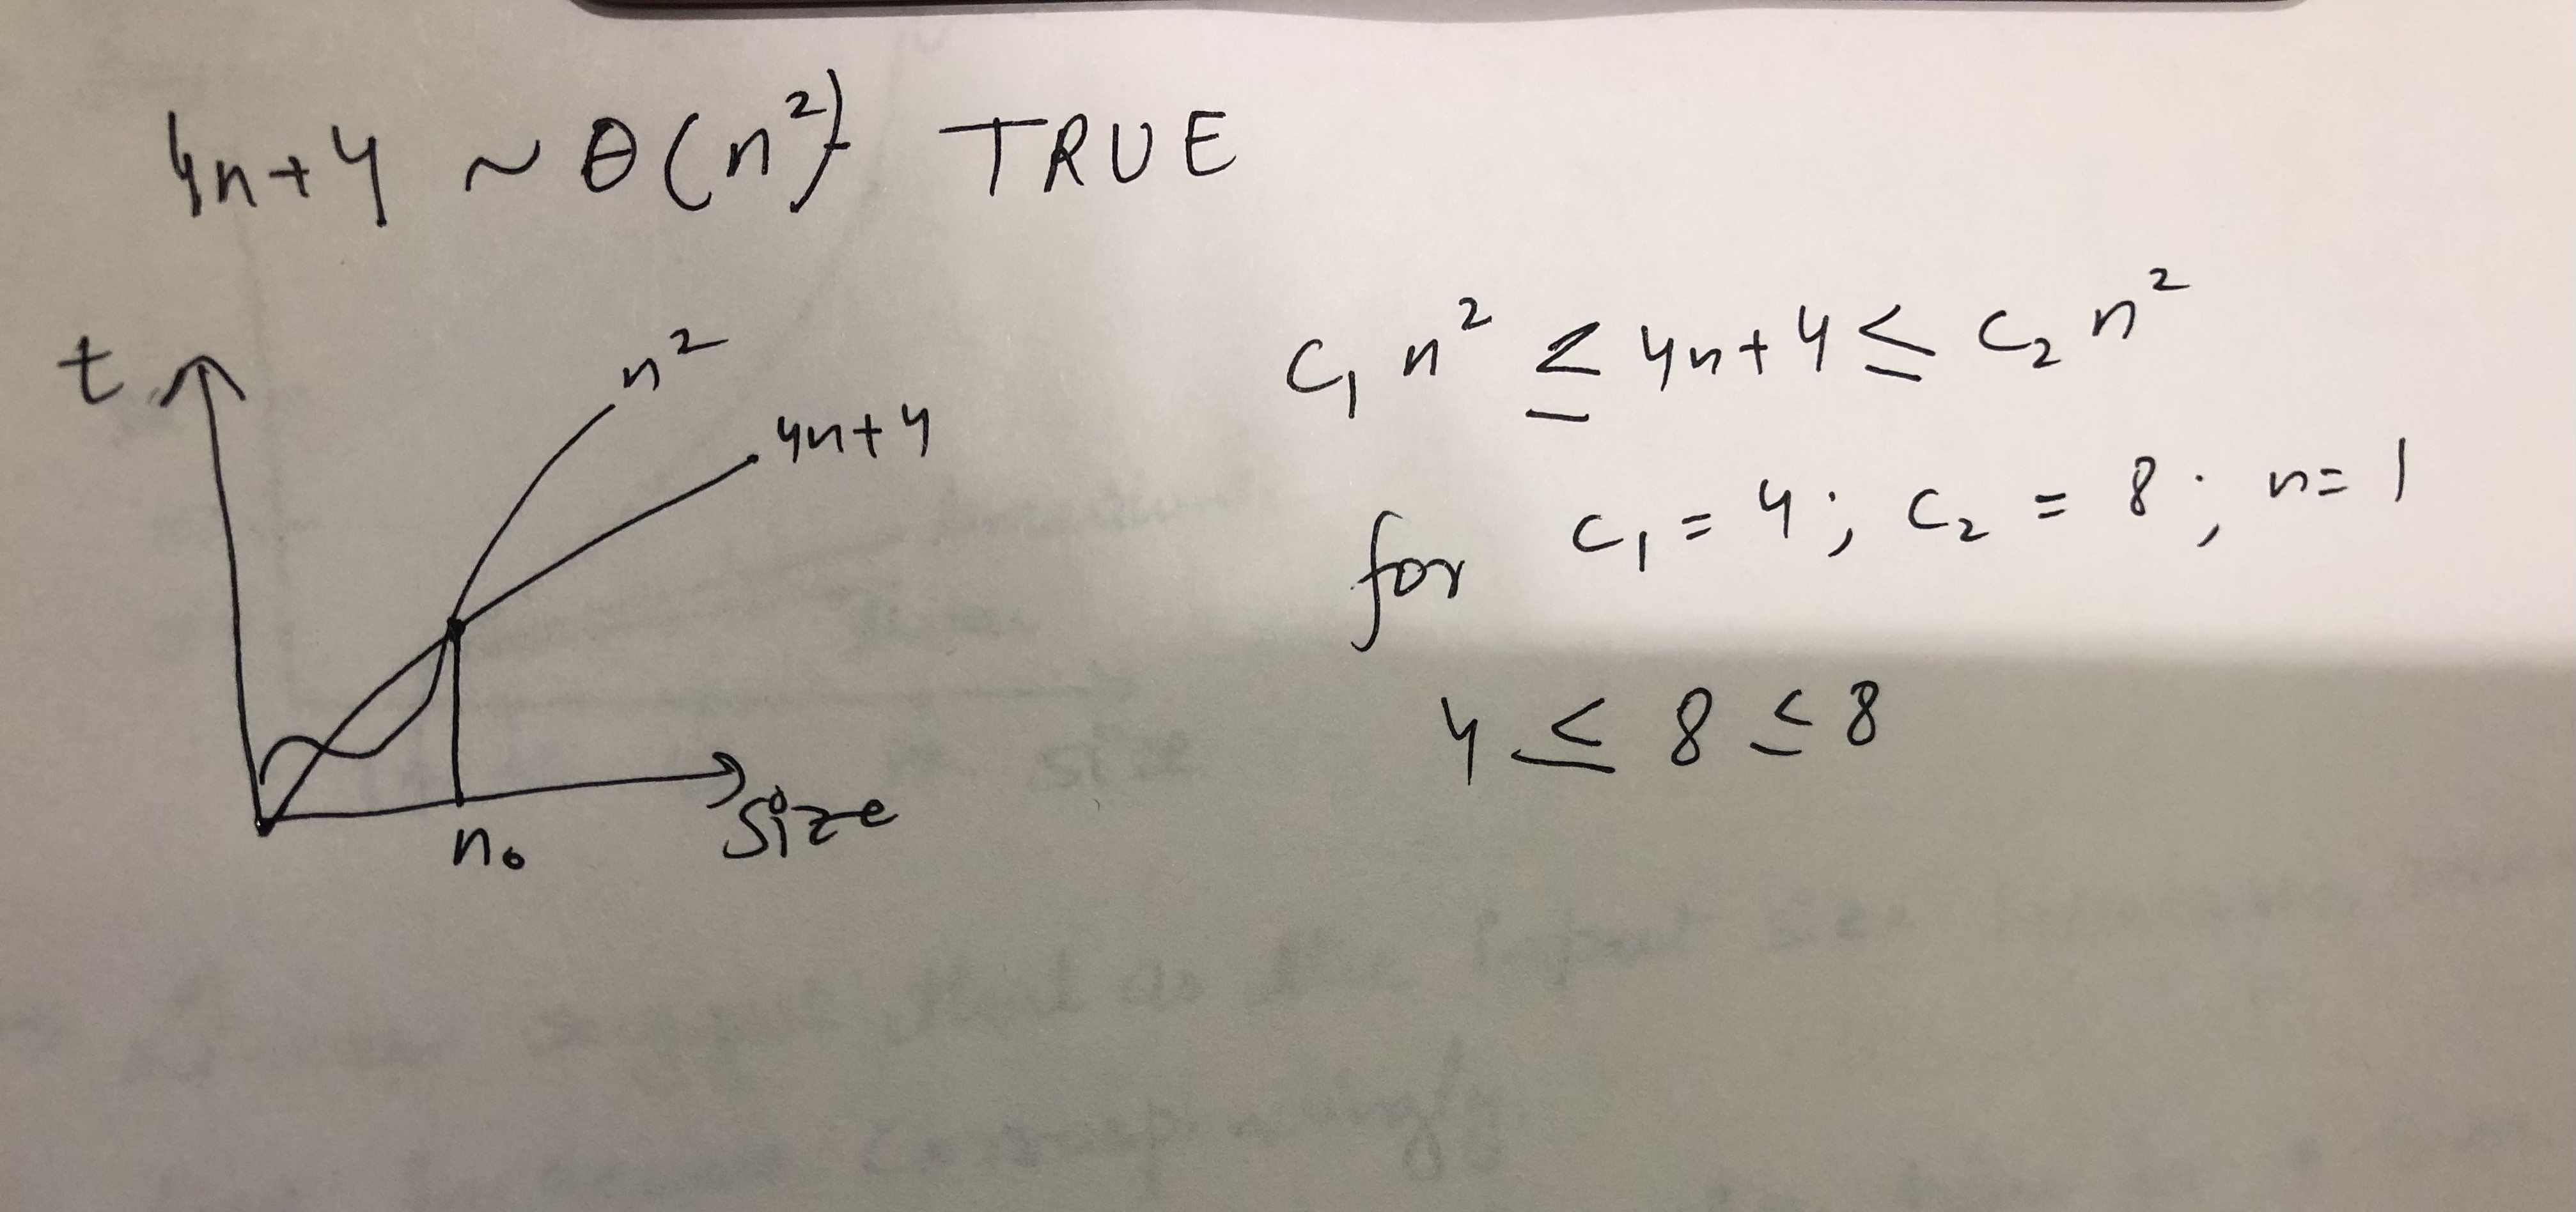 4n+4 ~ θ(n²) TRUE
t
n²
4n+4
n₀
size
C₁ n² ≤ 4n+4 ≤ C₂ n²
for C₁ = 4; C₂ = 8; n=1
4 ≤ 8 ≤ 8